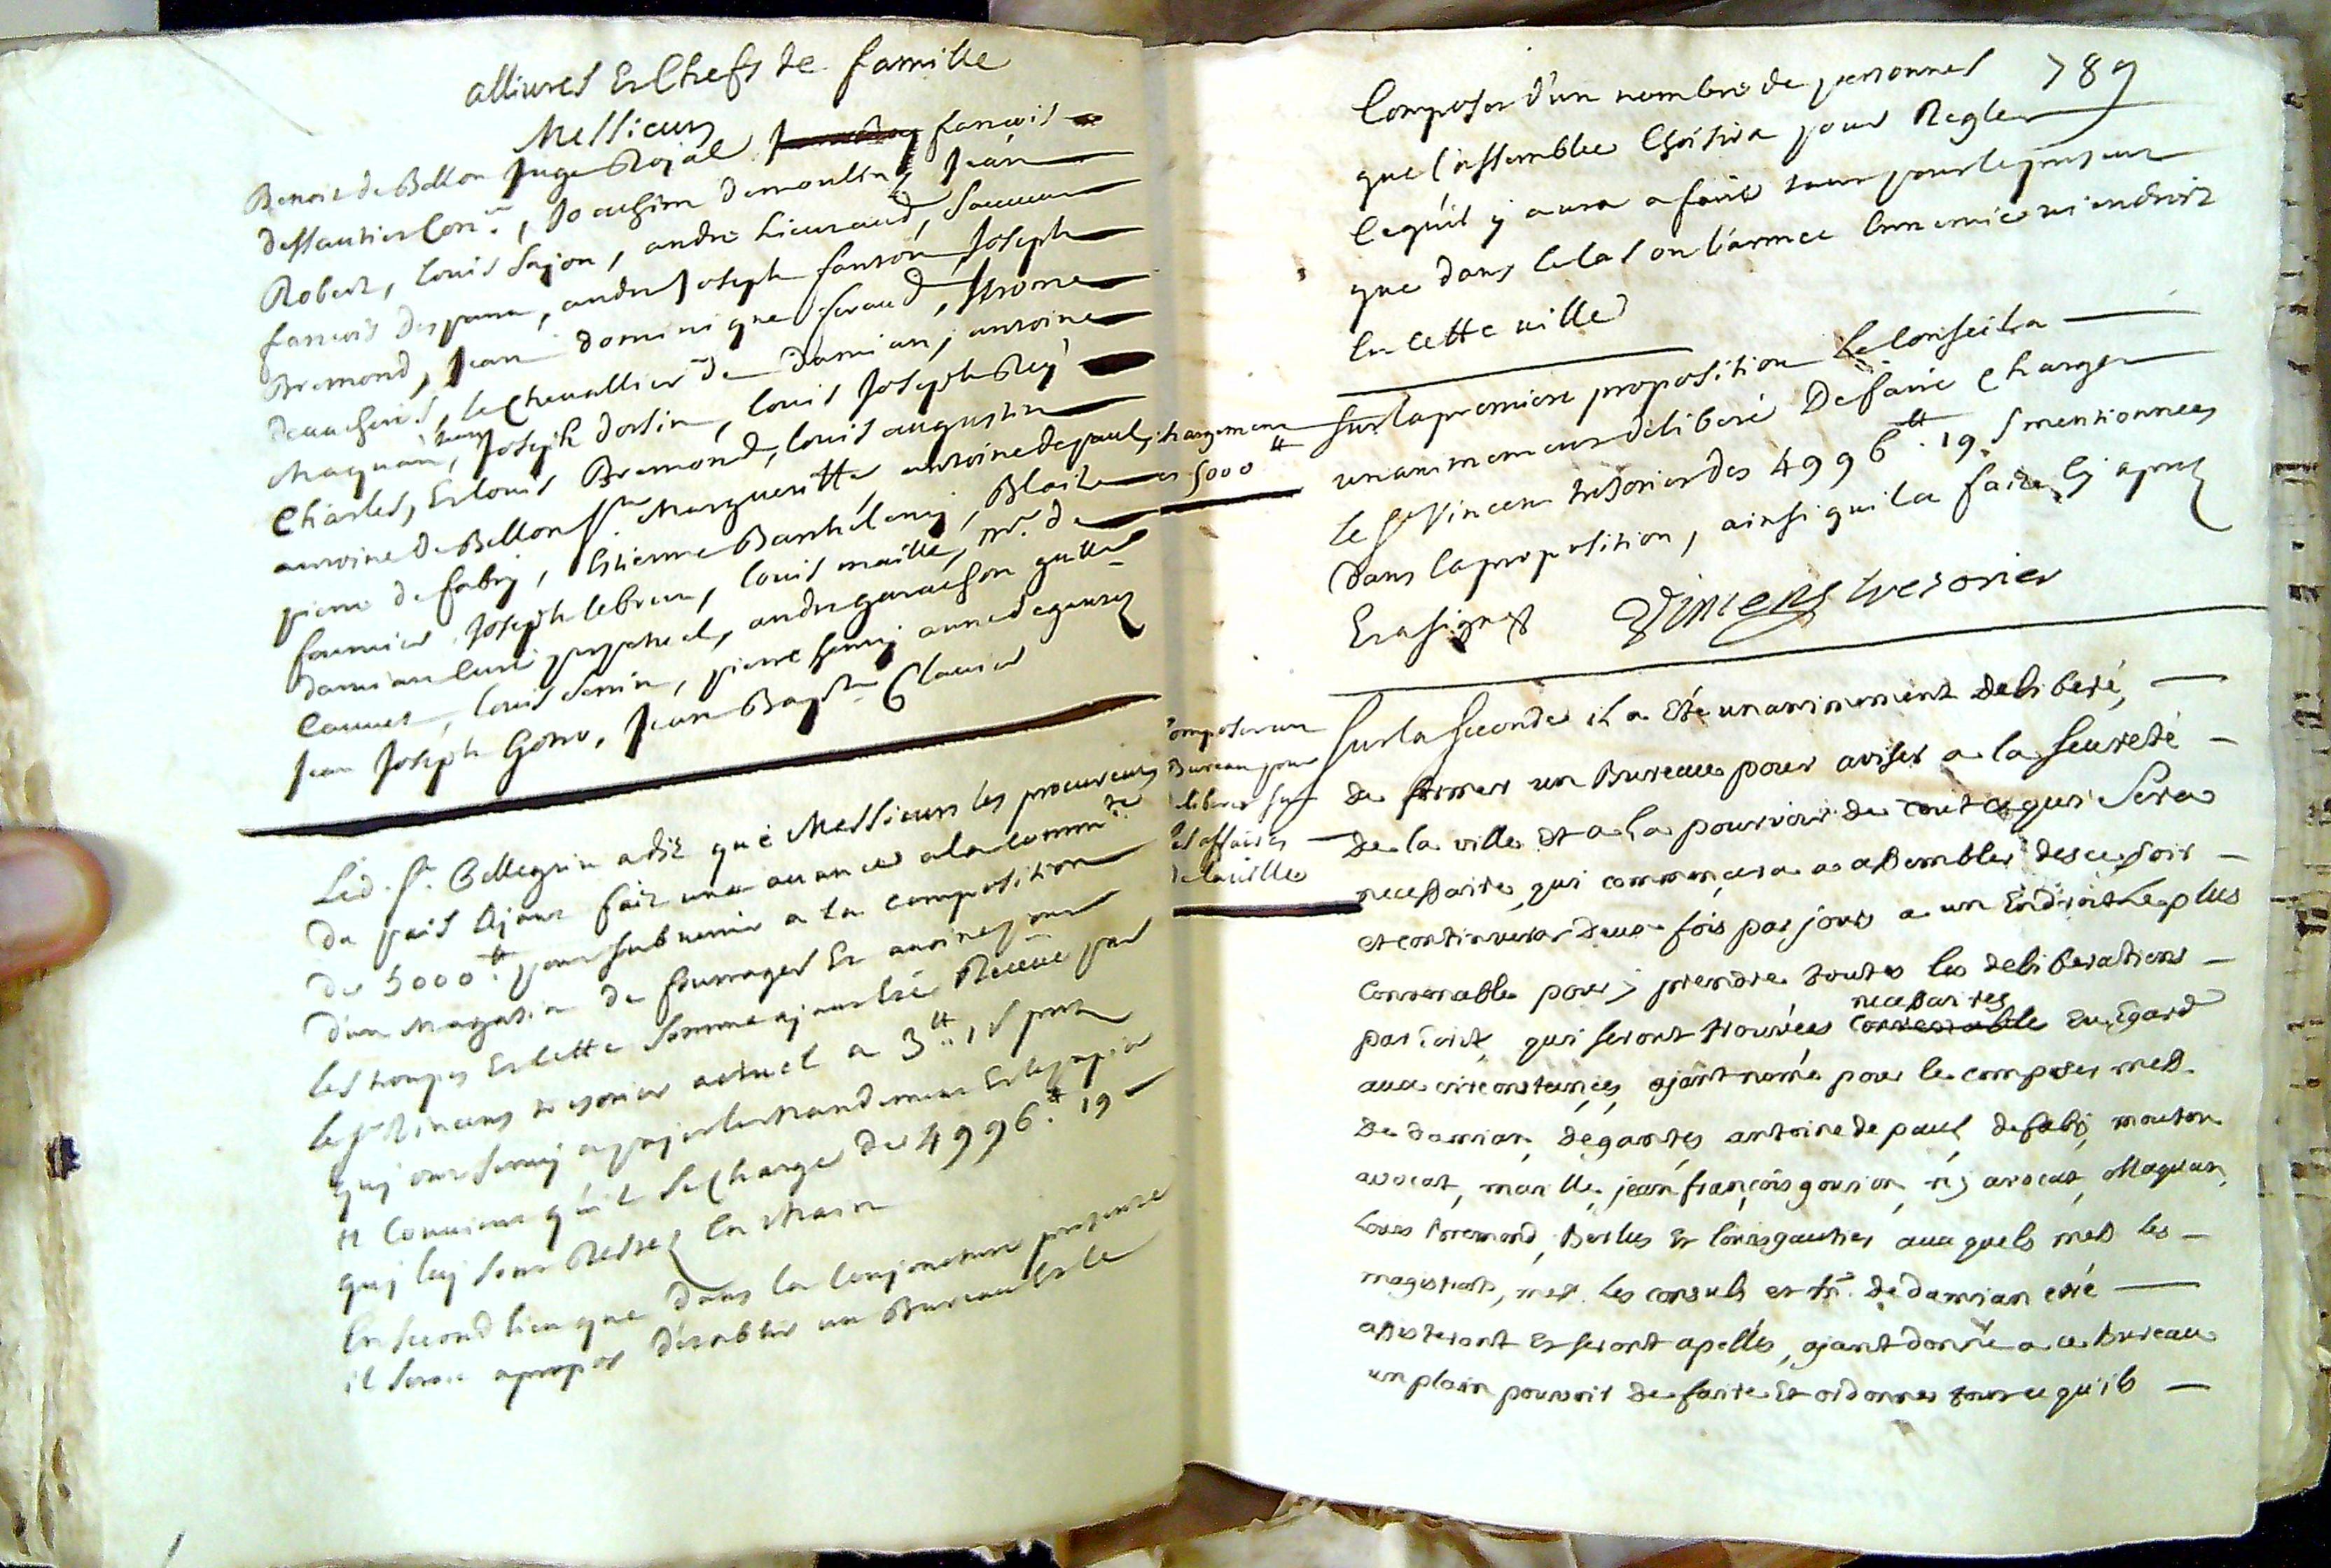 alliures Et Chefs de famille
Messieurs
Benoit de Bellon Juge Royal francois
dessautier Con.er, Joachim demoulin, Jean
Robert, louis Sajou, andre Lieutaud, Sauveur
francois despana, andre Joseph fanton, Joseph
Bremond, Jean dominique feraud, Jerome
le Chevallier de damian, antoine
Maquan, Joseph dorsin, louis Joseph Rey
Charles, Et louis Bremond, louis augustin
antoine de Bellon Ste Margueritte antoine de paul,
pierre de fabry, Estienne Barthelemy, Blaise
fournier Joseph lebrun, louis maille, mr. de
damian curé perpetuel, andre garachon guilles
Cauvet, louis Serrin, pierre henry anne degantez
Jean Joseph Goiro, Jean Bapte Clavier
Led. Sr. Bellegrin a dit que Messieurs les procureurs
du pais Ayant fait une avance a la Commté
de 5000 tt pour subvenir a la composition
d'un Magasin de fourrages Et avoine pour
les troupes Et cette somme ajant été Receüe par
le Sr Vincens tresorier actuel a 3 tt 1 s pret
quj ont servy a pajer le mandement Et le papier
Il Convient qu'il se Charge de 4996 tt 19
quj luj sont Restés En Main
En second lieu que dans la Conjoncture presente
il seroit apropos d'etablir un Bureau Et le
789
Composer d'un nombre de personnes
que l'assemblée Choisira pour Regler
Ce qu'il y aura a faire tant pour le present
que dans le Cas ou l'armée Ennemie viendroit
En cette ville
Chargement
et 5000 tt
Sur la premiere proposition Le Conseil a
unanimement deliberé De faire charger
le Sr Vincens tresorier des 4996 tt. 19 s mentionnées
dans la proposition, ainsi qui l'a fait Cy apres
Et a signé Vincens tresorier
Composer un
Bureau pour
deliberer sur
les affaires
de la ville
Sur la seconde il a Eté unanimement deliberé,
de former un Bureau pour aviser a la seureté
de la ville Et a la pourvoir de tout ce qui Sera
necessaire, qui commencera a assembler des ce soir
et continuera deux fois par jour a un Endroit le plus
convenable pour y prendre toutes les deliberations
necessaires
par Ecrit, qui seront trouvées convenable Eu Egard
aux circonstances, ajant nomé pour le composer mess.
de damian, degantes antoine de paul, defabry, mouton
avocat, maille, jean françois gourion, rey avocat, Maquan,
Louis bremond, Berlus Et louis gautier aux quels mess les
magistrats, mess. les consuls et mr. de damian curé
assisteront Et seront apellés, ajant donné a ce Bureau
un plain pouvoir de faire Et ordonner tout ce qu'ils